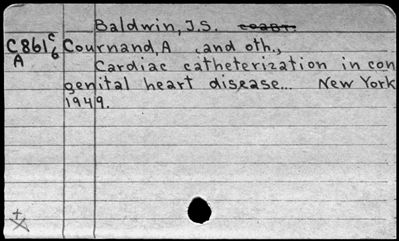 Baldwin, J.S. coaut.
C861c6 Cournand, A , and oth.,
A Cardiac catheterization in con
genital heart disease... New York
1949.